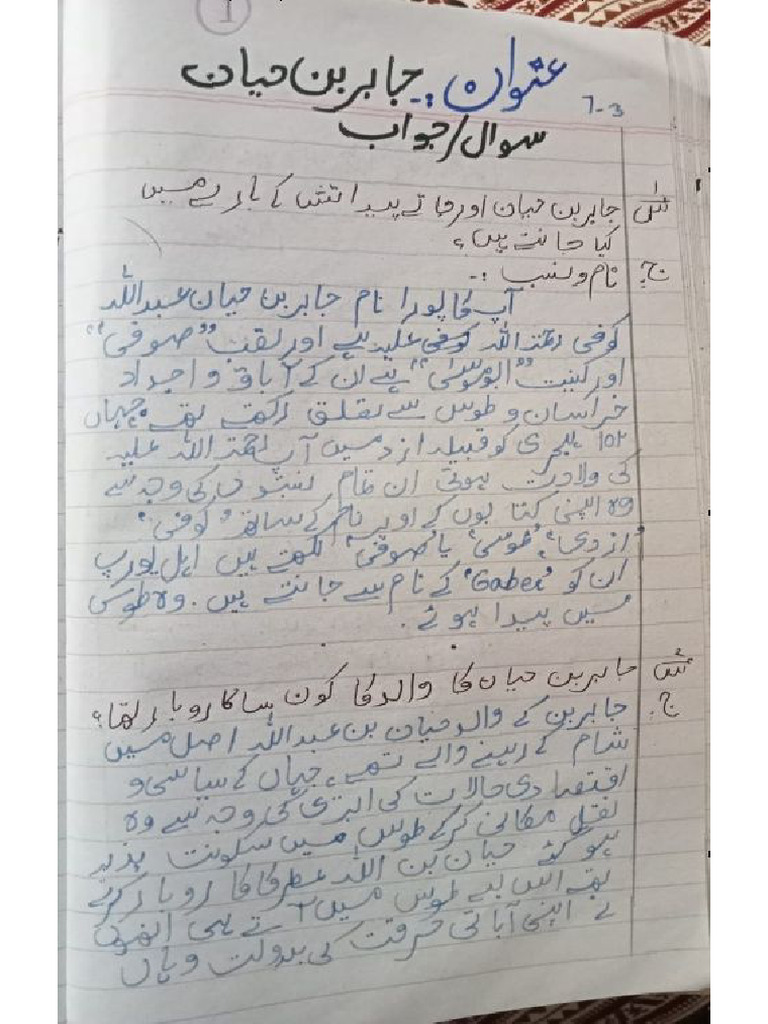 1
عنوان :۔ جابر بن حیان
7-3
سوال/جواب
س۱ جابر بن حیان اور جائے پیدائش کے بارے میں
کیا جانتے ہیں؟
ج: نام و نسب :۔
آپ کا پورا نام جابر بن حیان عبداللہ
کوفی رحمتہ اللہ کوفی علیہ ہے اور لقب "صوفی"
اور کنیت "ابو موسیٰ" ہے ان کے آباؤ و اجداد
خراسان و طوس سے تعلق رکھتے تھے جہاں
۱۰۲ ہجری کو قبیلہ ازد میں آپ رحمتہ اللہ علیہ
کی ولادت ہوئی ان تمام نسبتوں کی وجہ سے
وہ اپنی کتابوں کے اوپر نام کے ساتھ 'کوفی'
'ازدی'، 'طوسی' یا 'صوفی' لکھتے ہیں اہل یورپ
ان کو 'Gaber' کے نام سے جانتے ہیں۔ وہ طوس
میں پیدا ہوئے۔
س جابر بن حیان کا والد کا کون سا کاروبار تھا؟
ج: جابر بن کے والد حیان بن عبداللہ اصل میں
شام کے رہنے والے تھے، جہاں کے سیاسی و
اقتصادی حالات کی ابتری کی وجہ سے وہ
نقل مکانی کرکے طوس میں سکونت پذیر
ہو گئے حیان بن اللہ عطر کا کاروبار کرتے
تھے اس لیے طوس میں آتے ہی انھوں
نے اپنی آبائی حرفت کی بدولت وہاں